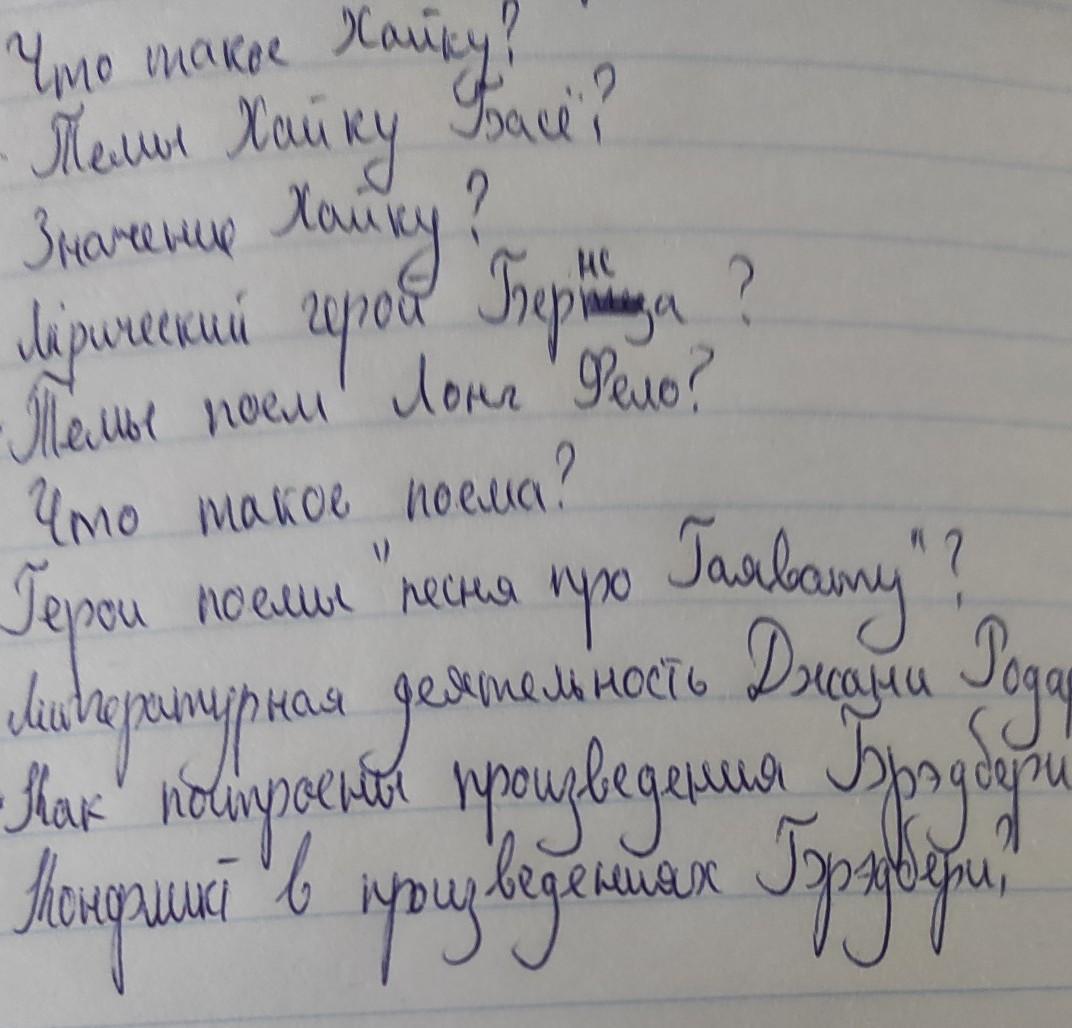 Что такое Хайку?
Темы Хайку Басё?
Значение Хайку?
Лірический герой Бернса?
Темы поем Лонг Фело?
Что такое поема?
Герои поемы "песня про Гаявату"?
Литературная деятельность Джани Родар
Как построены произведения Брэдбери
Конфликт в произведениях Брэдбери?